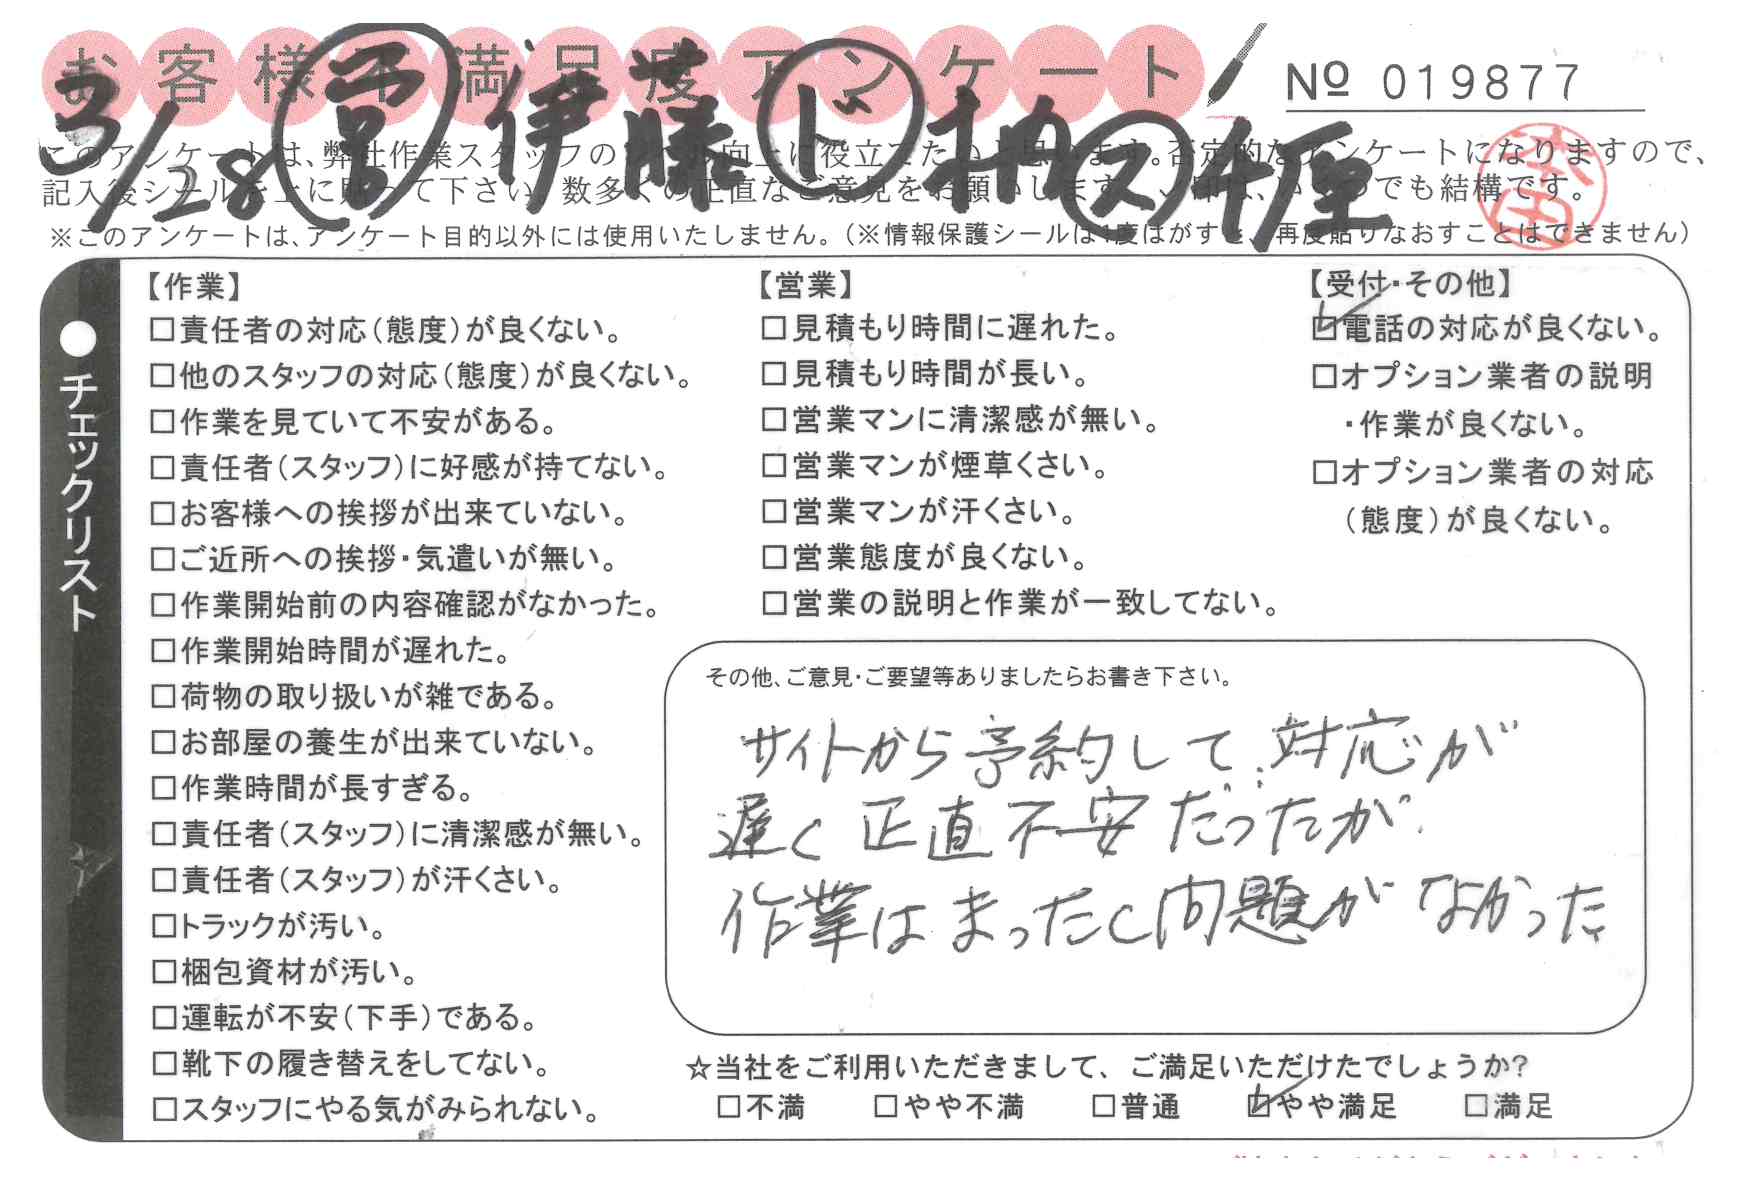 お客様不満足度アンケート
№ 019877
3/28 営 伊藤 ド 柚 ス 千屋
このアンケートは、弊社作業スタッフの 向上に役立てたいと思います。否定的なアンケートになりますので、
記入後シールを上に貼って下さい。数多くの正直なご意見をお願いします。✓印は、いくつでも結構です。
※このアンケートは、アンケート目的以外には使用いたしません。(※情報保護シールは1度はがすと、再度貼りなおすことはできません)
●チェックリスト
【作業】
□責任者の対応(態度)が良くない。
□他のスタッフの対応(態度)が良くない。
□作業を見ていて不安がある。
□責任者(スタッフ)に好感が持てない。
□お客様への挨拶が出来ていない。
□ご近所への挨拶・気遣いが無い。
□作業開始前の内容確認がなかった。
□作業開始時間が遅れた。
□荷物の取り扱いが雑である。
□お部屋の養生が出来ていない。
□作業時間が長すぎる。
□責任者(スタッフ)に清潔感が無い。
□責任者(スタッフ)が汗くさい。
□トラックが汚い。
□梱包資材が汚い。
□運転が不安(下手)である。
□靴下の履き替えをしてない。
□スタッフにやる気がみられない。
【営業】
□見積もり時間に遅れた。
□見積もり時間が長い。
□営業マンに清潔感が無い。
□営業マンが煙草くさい。
□営業マンが汗くさい。
□営業態度が良くない。
□営業の説明と作業が一致してない。
【受付・その他】
☑電話の対応が良くない。
□オプション業者の説明
・作業が良くない。
□オプション業者の対応
(態度)が良くない。
その他、ご意見・ご要望等ありましたらお書き下さい。
サイトから予約して対応が
遅く正直不安だったが
作業はまったく問題がなかった
☆当社をご利用いただきまして、ご満足いただけたでしょうか?
□不満 □やや不満 □普通 ☑やや満足 □満足